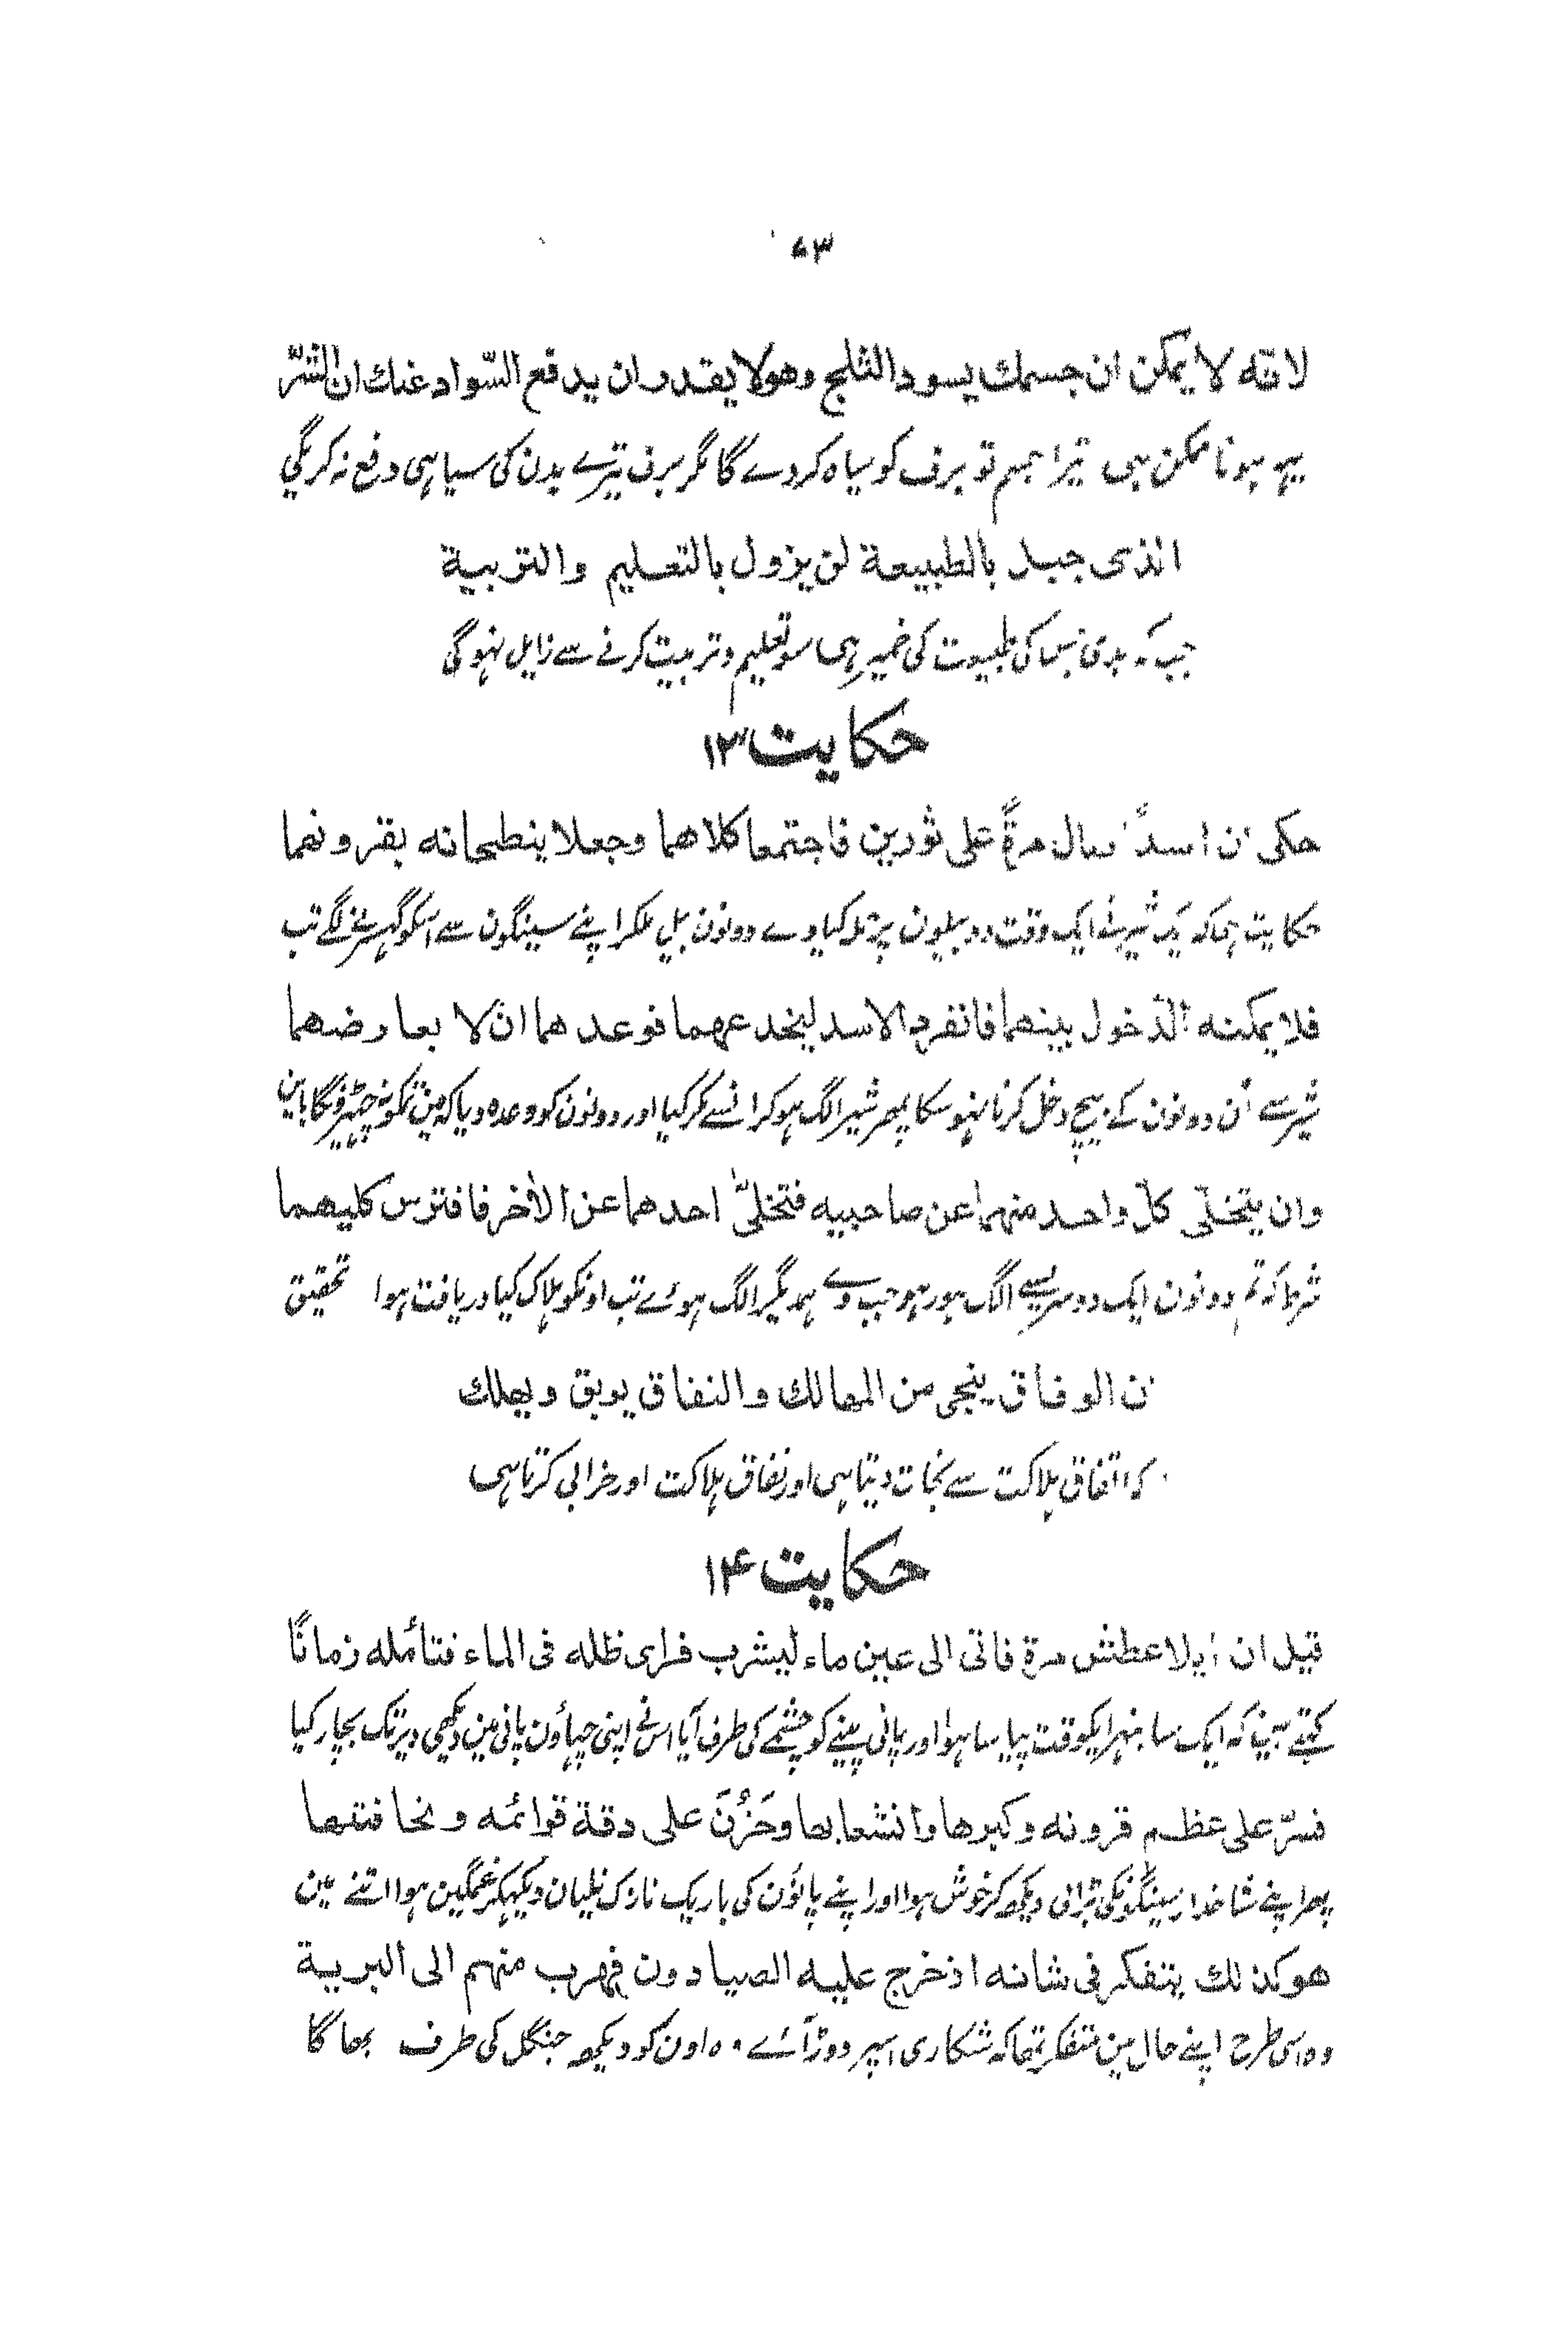 ۵۳
لانّه لا يمكن ان جسمك يسود الثلج وهو لا يقدر ان يدفع السّواد عنك انّ الشّرّ
یہہ ہونا ممکن ہی تیرا جسم تو برف کو سیاہ کردے گا مگر برف تیرے بدن کی سیاہی دفع نہ کریگی
الذى جبل بالطبيعة لن يزول بالتعليم والتربية
جب کہ بدی جس کی طبیعت کی خمیر ہی سو تعلیم و تربیت کرنے سے زایل نہوگی
حکایت ۱۳
حكى ان اسداً صال مرةً على ثورين فاجتمعا كلاهما وجعلا ينطحانه بقرونهما
حکایت ہی کہ یک شیر نے ایک وقت دو بیلون پر حملہ کیا وے دونون بیل ملکر اپنے سینگون سے اسکو گہسرنے لگے تب
فلا يمكنه الدّخول بينهما فانفرد الاسد ليخدعهما فوعدهما ان لا يعارضهما
شیر سے اُن دونون کے بیچ دخل کرنا نہوسکا پھر شیر الگ ہوکر انسے مکر کیا اور دونون کو وعدہ دیا کہ مین تمکو نہ چہیڑونگا باین
وان يتخلّى كلّ واحد منهما عن صاحبيه فتخلىّ احدهما عن الأخر فافترس كليهما
شرط کہ تم دونون ایک دوسریسے الگ ہو رہو جب وے ہمدیگر الگ ہوئے تب اونکو ہلاک کیا دریافت ہوا تحقیق
ان الوفاق ينجى من المهالك والنفاق يوبق ويهلك
کہ اتفاق ہلاکت سے نجات دیتا ہی اور نفاق ہلاکت اور خرابی کرتا ہی
حکایت ۱۴
قيل ان ايلا عطش مرة فاتى الى عين ماء ليشرب فراى ظله فى الماء فتأمله زمانًا
کہتے ہین کہ ایک سانبہر ایکوقت پیاسا ہوا اور پانی پینے کو چشمے کی طرف آیا اس نے اپنی چہاؤن پانی مین دیکھی دیر تک بچار کیا
فسرّ على عظم قرونه وكبرها وانشعابها وحَزُنَ على دقة قوائمه ونحافتها
پھر اپنے شاخدار سینگونکی بڑائی دیکھ کر خوش ہوا اور اپنے پاؤن کی باریک نازک نلیان دیکہکر غمگین ہوا اتنے مین
هو كذلك يتفكر فى شانه اذ خرج عليه الصيادون فهرب منهم الى البرية
وہ اسی طرح اپنے حال مین متفکر تھا کہ شکاری اسپر دوڑ آئے وہ اون کو دیکھ جنگل کی طرف بھاگا